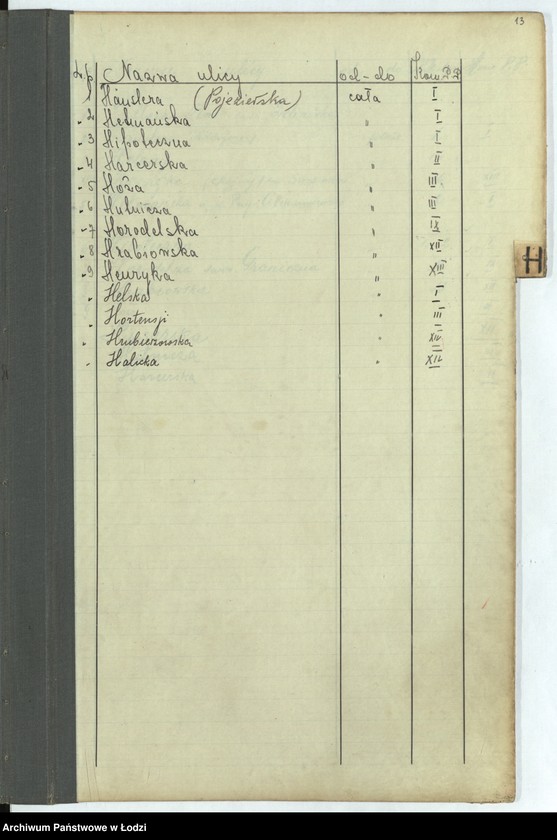 13
L.p. Nazwa ulicy od-do Kom. P.P.
1 Häuslera (Pojezierska) cała I
2 Hetmańska " I
3 Hipoteczna " I
4 Harcerska " II
5 Hoża " III
6 Hutnicza " III
7 Horodelska " IX
8 Hrabiowska " XII
9 Henryka " XIII
Helska " I
Hortensji " III
Hrubieszowska " XII
Halicka " XII
H
Archiwum Państwowe w Łodzi